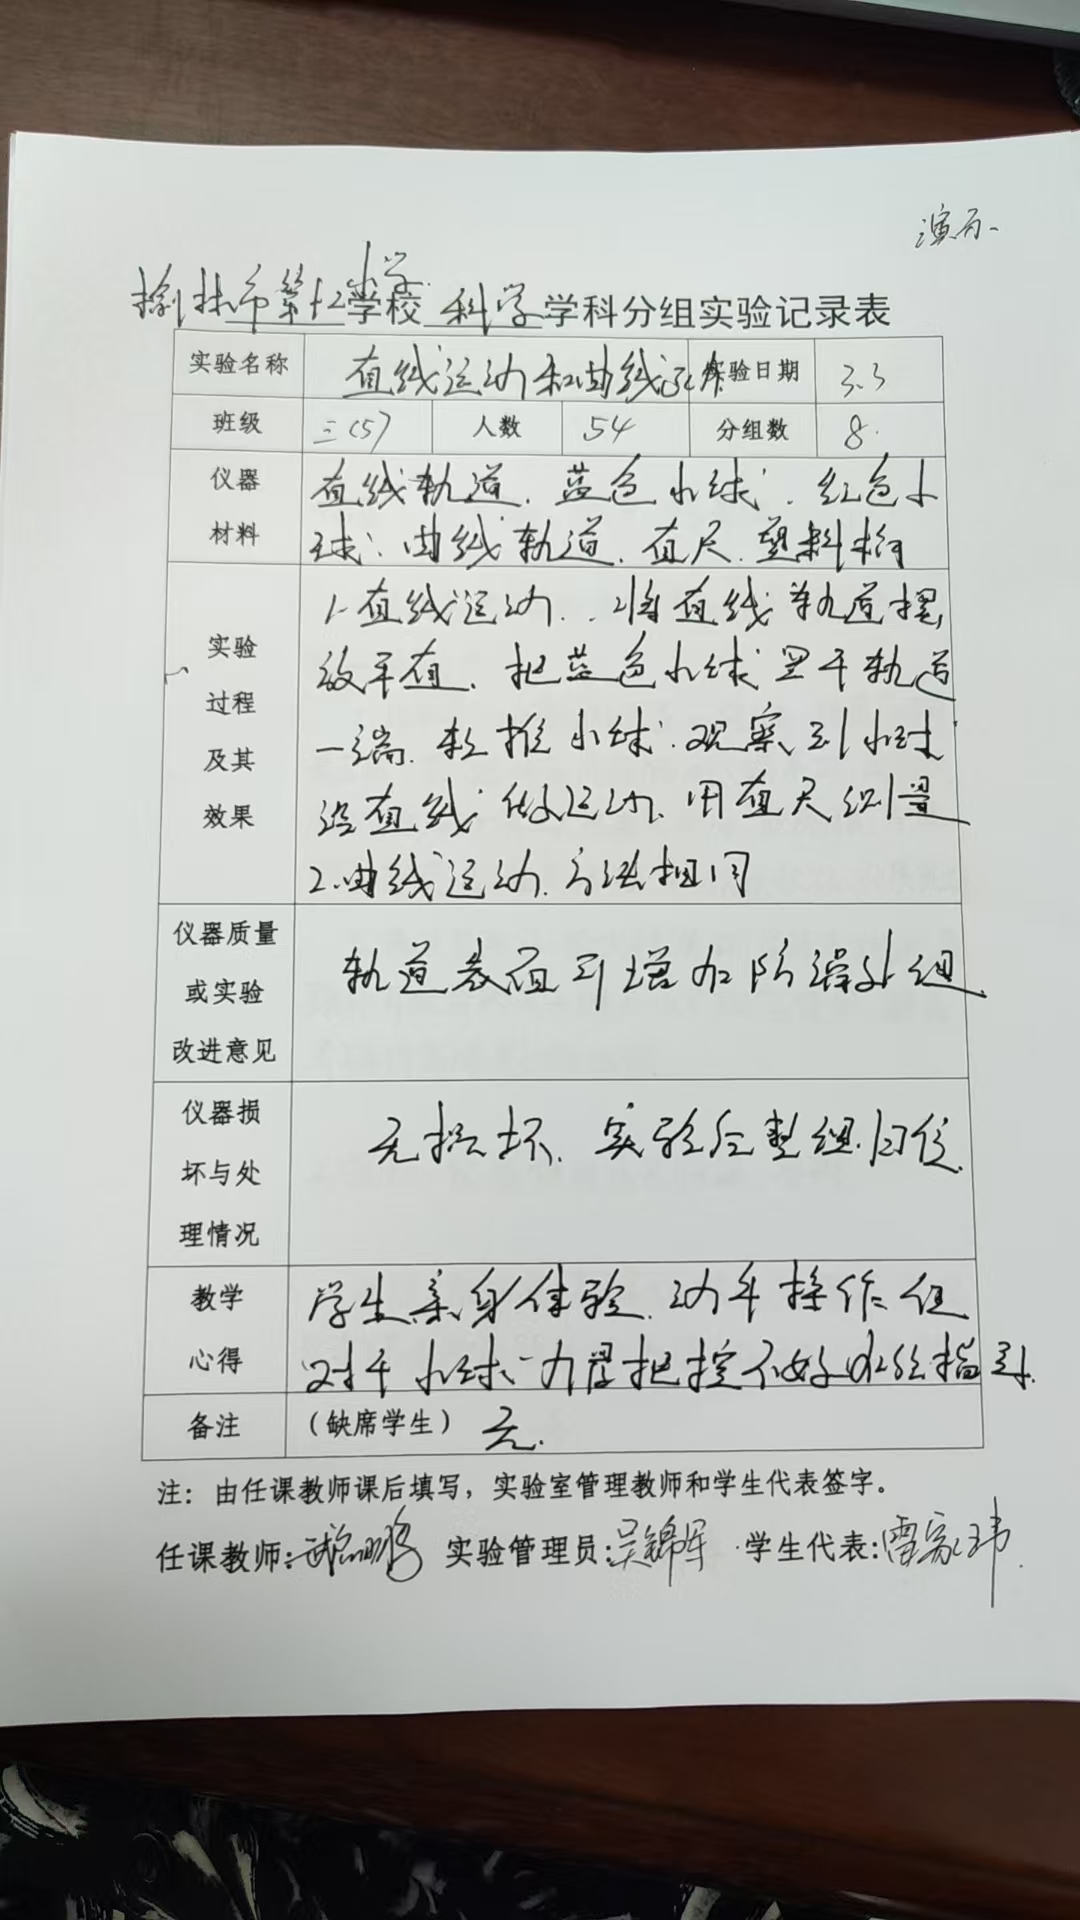 演示
榆林市第十二小学学校 科学 学科分组实验记录表
实验名称 直线运动和曲线运动 实验日期 3.3
班级 三(5) 人数 54 分组数 8
仪器 直线轨道、蓝色小球、红色小
材料 球、曲线轨道、直尺、塑料桥
实验 1.直线运动、将直线轨道摆
放平直、把蓝色小球置于轨道
过程 一端、轻推小球、观察到小球
及其
效果 沿直线做运动、用直尺测量
2.曲线运动、方法相同
仪器质量
或实验 轨道表面可增加防滑
改进意见
仪器损 无损坏、实验后整组归位
坏与处
理情况
教学 学生亲身体验、动手操作但
心得 对于小球力度把控不好 指导
备注 (缺席学生) 无.
注：由任课教师课后填写，实验室管理教师和学生代表签字。
任课教师: 实验管理员:吴锦军 学生代表:雷家玮